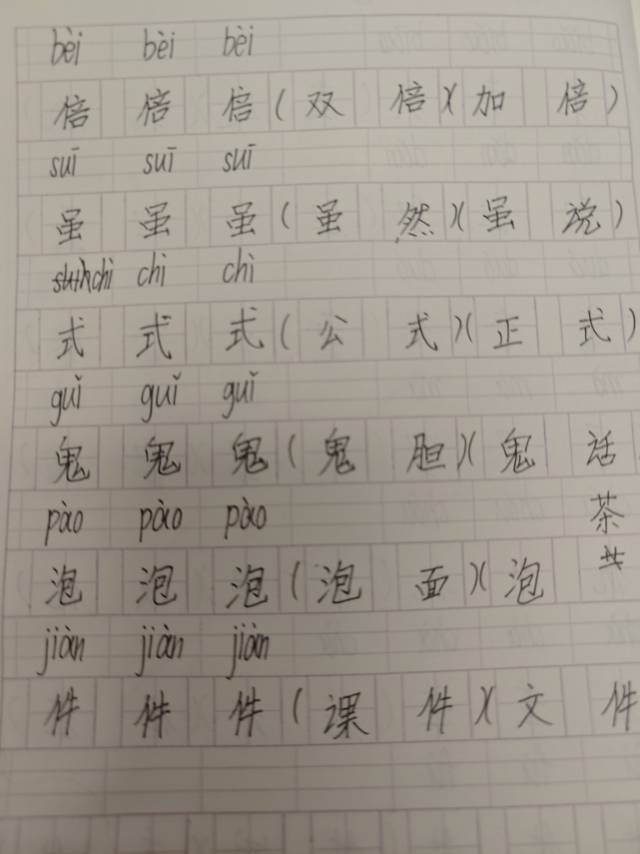 bèi bèi bèi
倍 倍 倍 (双 倍)(加 倍)
suī suī suī
虽 虽 虽 (虽 然)(虽 说)
chì chì chì
式 式 式 (公 式)(正 式)
guǐ guǐ guǐ
鬼 鬼 鬼 (鬼 胆)(鬼 话
pào pào pào
泡 泡 泡 (泡 面)(泡 茶
jiàn jiàn jiàn
件 件 件 (课 件)(文 件